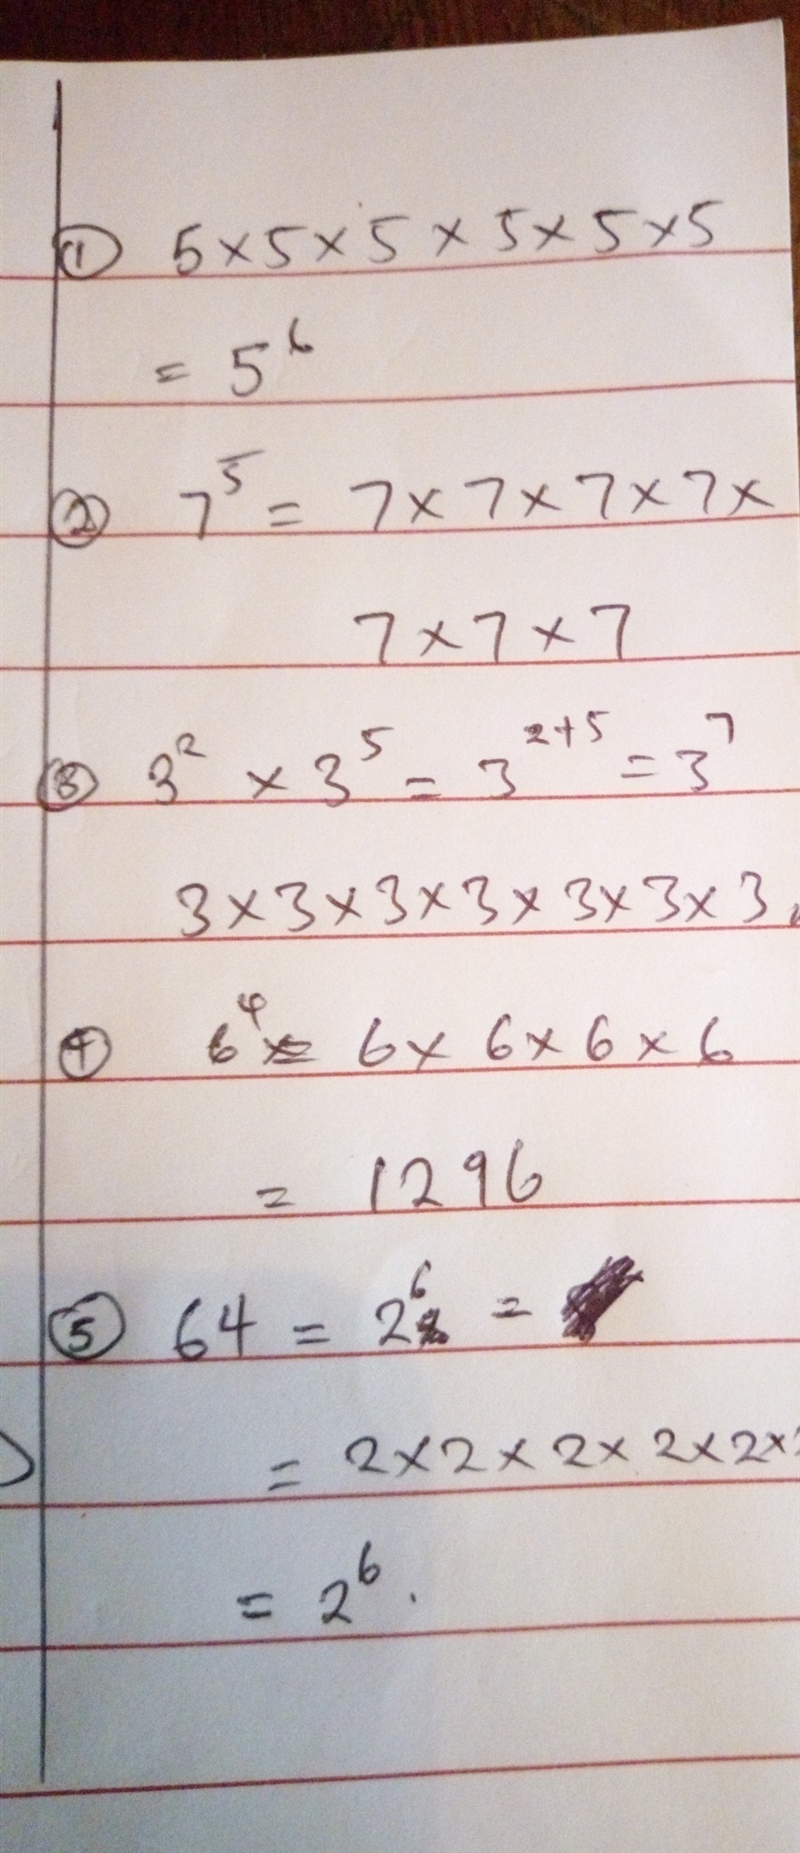 ① 5×5×5×5×5×5
= 5⁶
② 7⁵ = 7×7×7×7×
7×7×7
③ 3² × 3⁵ = 3²⁺⁵ = 3⁷
3×3×3×3×3×3×3
④ 6⁴ = 6×6×6×6
= 1296
⑤ 64 = 2⁶ =
= 2×2×2×2×2×
= 2⁶.